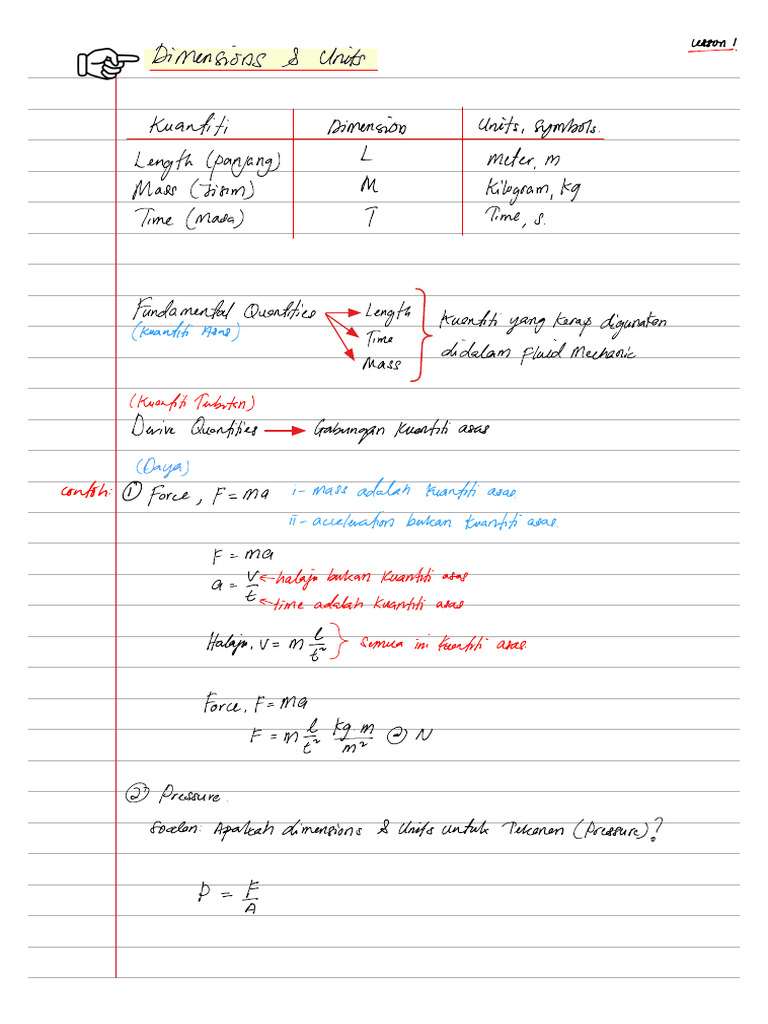 Lesson 1
Dimensions & Units
Kuantiti Dimension Units, Symbols.
Length (panjang) L Meter, m
Mass (Jisim) M Kilogram, kg
Time (Masa) T Time, s.
Fundamental Quantities → Length
(Kuantiti Asas) Time
Mass
Kuantiti yang kerap digunakan
didalam Fluid Mechanic
(Kuantiti Terbitan)
Derive Quantities → Gabungan kuantiti asas
(Daya)
contoh: ① Force, F = ma i- mass adalah kuantiti asas
ii- acceleration bukan kuantiti asas.
F = ma
a = v/t ← halaju bukan kuantiti asas
← time adalah kuantiti asas
Halaju, v = m l/t² } semua ini kuantiti asas
Force, F = ma
F = m l/t² kg.m/m² @ N
② Pressure.
Soalan: Apakah dimensions & Units untuk Tekanan (Pressure)?
P = F/A